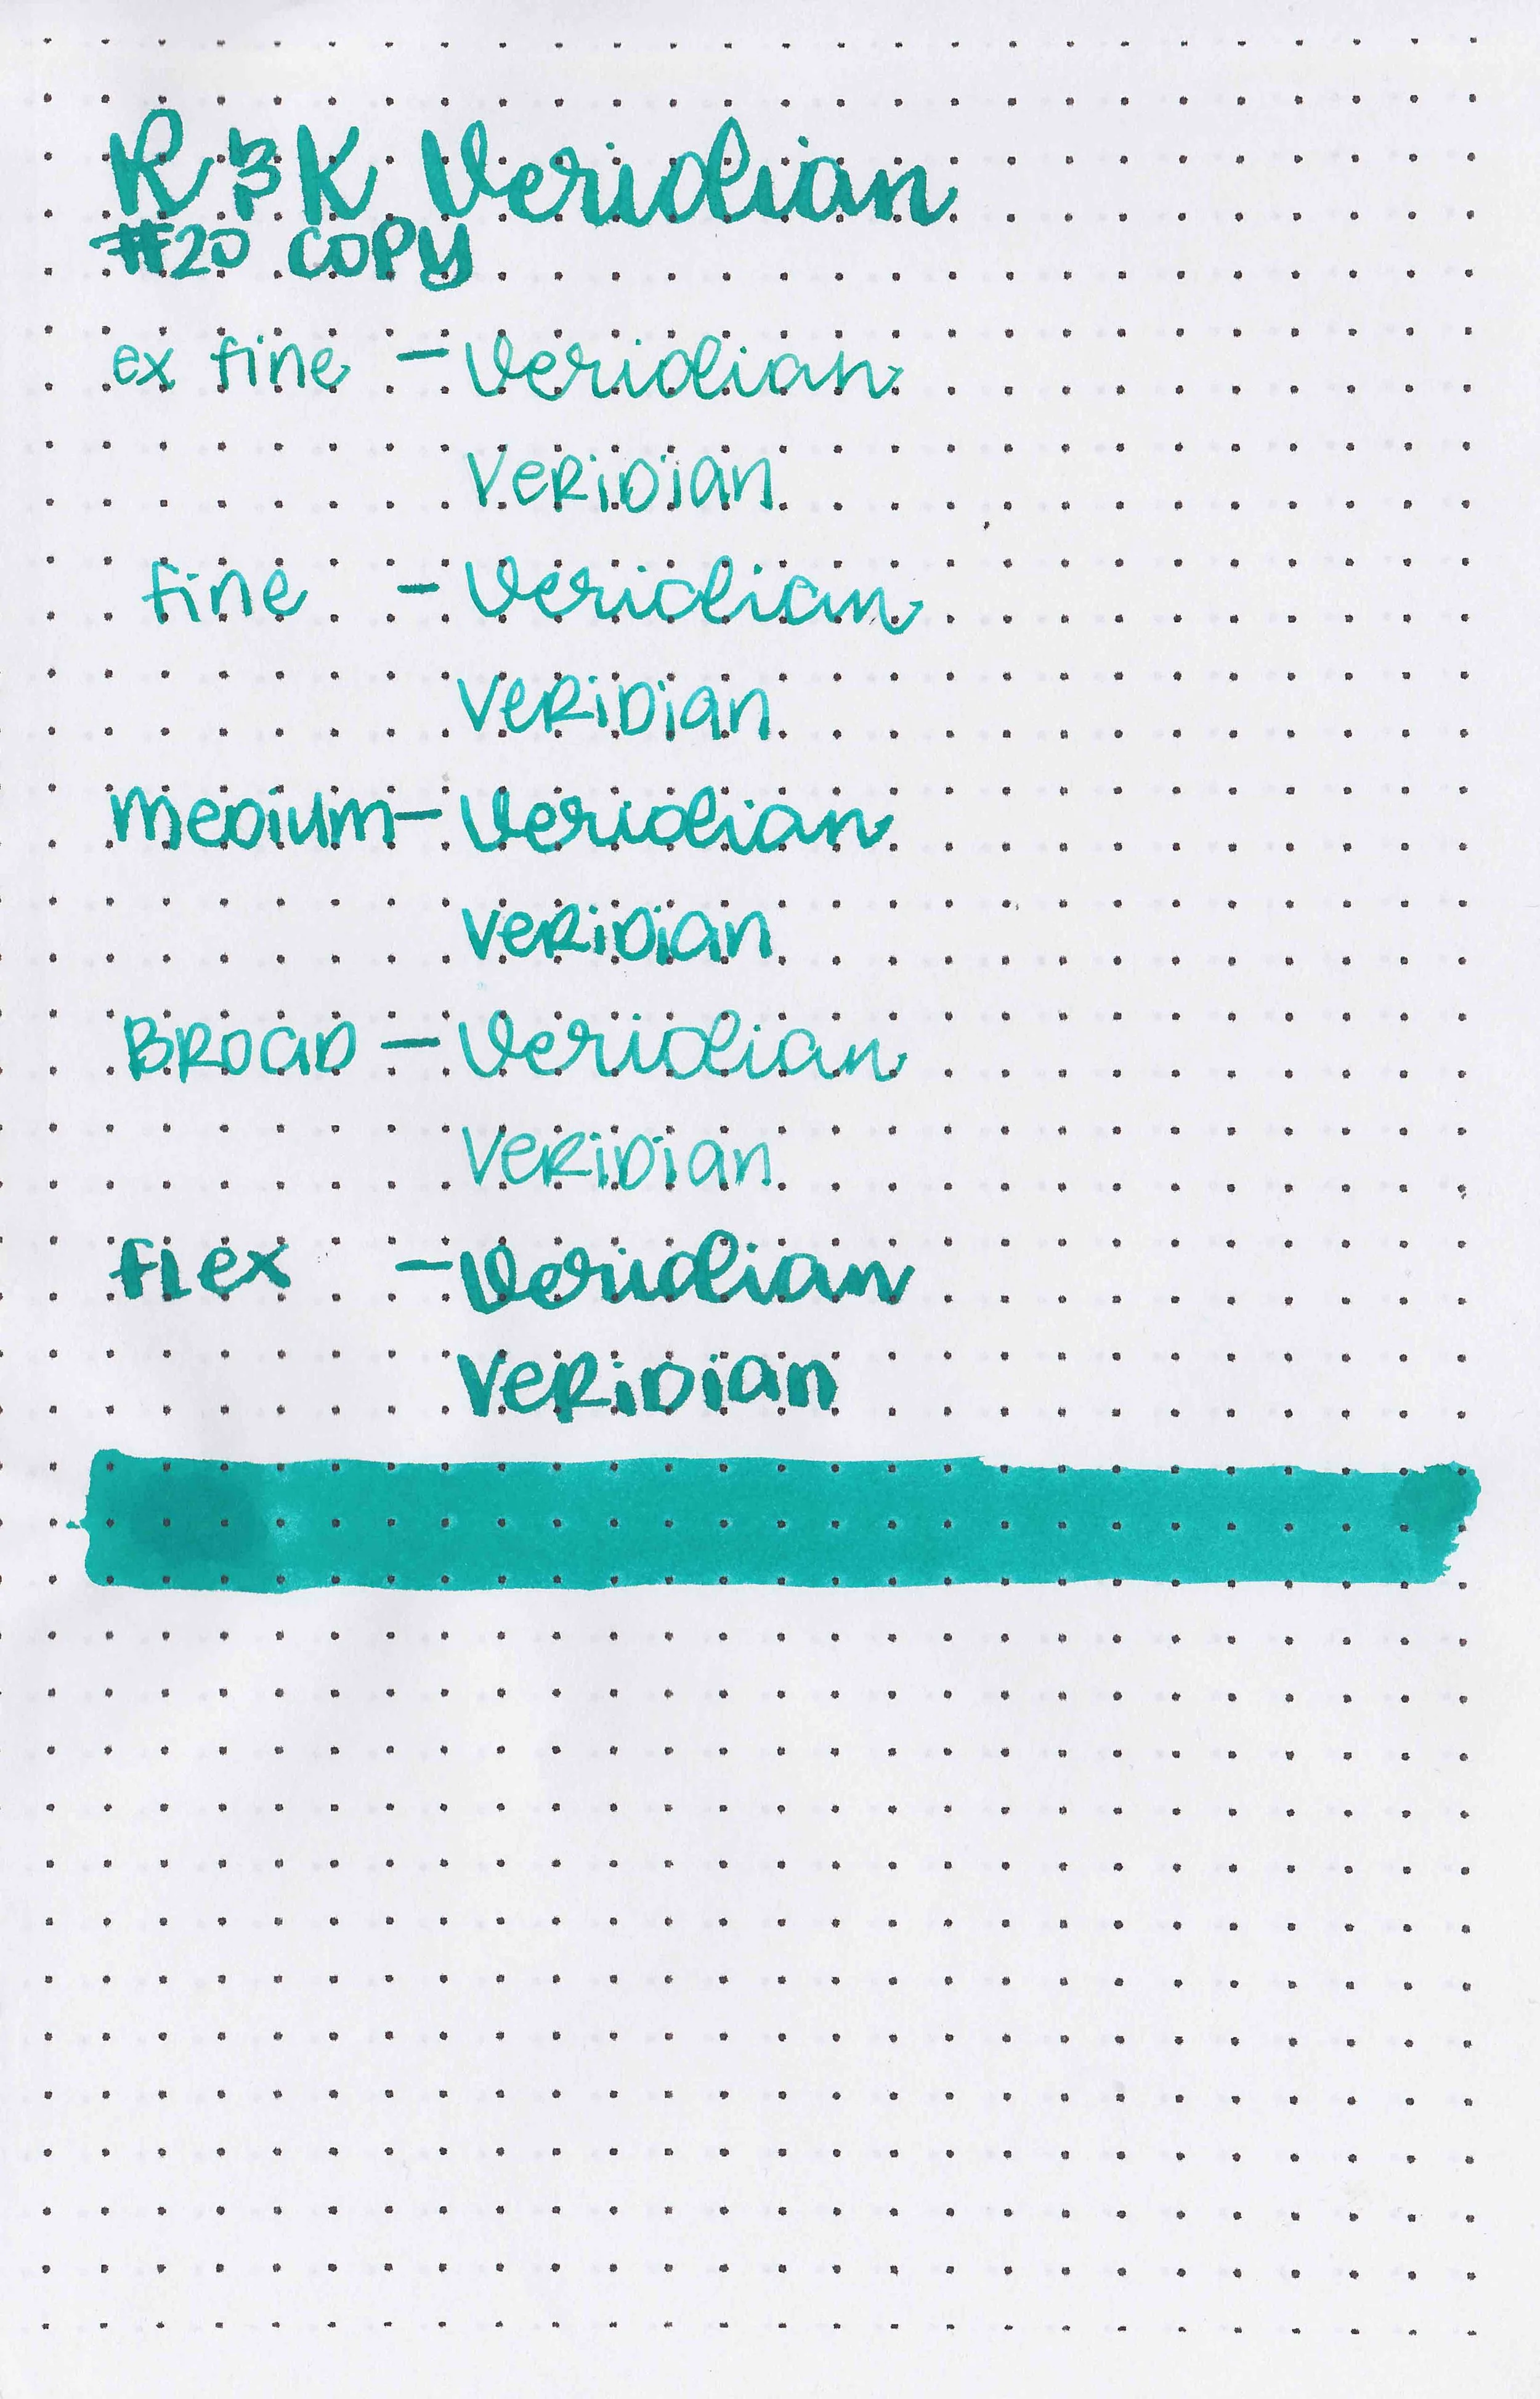 R & K Veridian
#20 COPY
ex fine - Veridian
Veridian
fine - Veridian
Veridian
Medium - Veridian
Veridian
Broad - Veridian
Veridian
flex - Veridian
Veridian